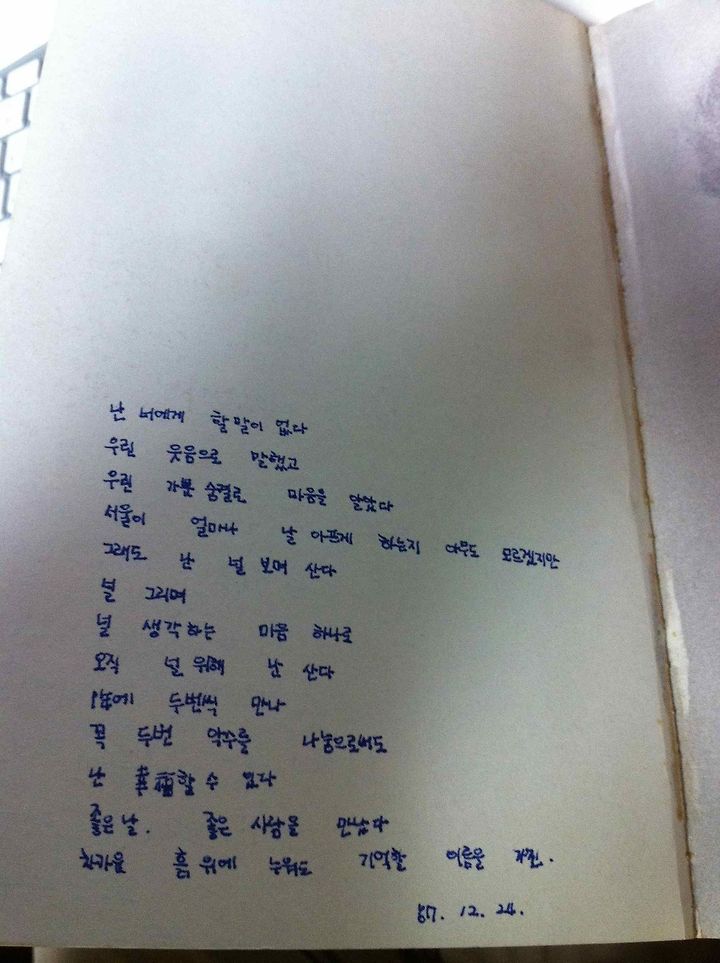 난 너에게 할 말이 없다
우린 웃음으로 말했고
우린 가쁜 숨결로 마음을 알았다
서울이 얼마나 날 아프게 하는지 아무도 모르겠지만
그래도 난 널 보며 산다
널 그리며
널 생각하는 마음 하나로
오직 널 위해 난 산다
1年에 두번씩 만나
꼭 두번 악수를 나눔으로써도
난 幸福할 수 있다
좋은 날. 좋은 사람을 만났다
차가운 흙 위에 누워도 기억할 이름을 가진.
87. 12. 24.